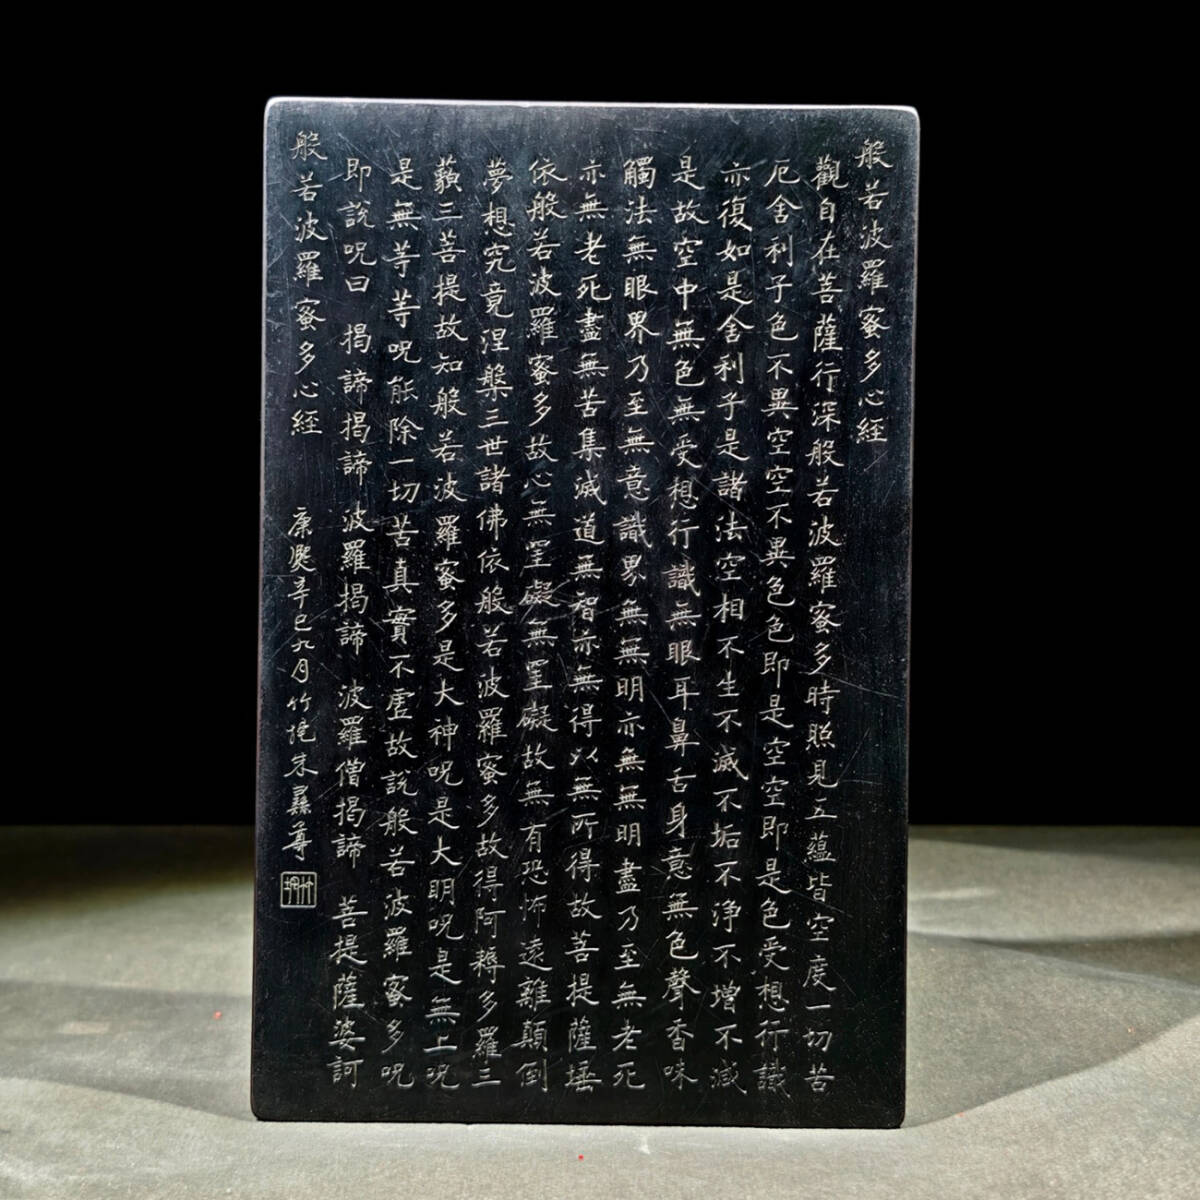 般若波羅蜜多心經
觀自在菩薩行深般若波羅蜜多時照見五蘊皆空度一切苦
厄舍利子色不異空空不異色色即是空空即是色受想行識
亦復如是舍利子是諸法空相不生不滅不垢不淨不增不減
是故空中無色無受想行識無眼耳鼻舌身意無色聲香味
觸法無眼界乃至無意識界無無明亦無無明盡乃至無老死
亦無老死盡無苦集滅道無智亦無得以無所得故菩提薩埵
依般若波羅蜜多故心無罣礙無罣礙故無有恐怖遠離顛倒
夢想究竟涅槃三世諸佛依般若波羅蜜多故得阿耨多羅三
藐三菩提故知般若波羅蜜多是大神呪是大明呪是無上呪
是無等等呪能除一切苦真實不虛故說般若波羅蜜多呪
即說呪曰 揭諦揭諦 波羅揭諦 波羅僧揭諦 菩提薩婆訶
般若波羅蜜多心經 康熙辛巳九月竹垞朱彝尊
竹垞